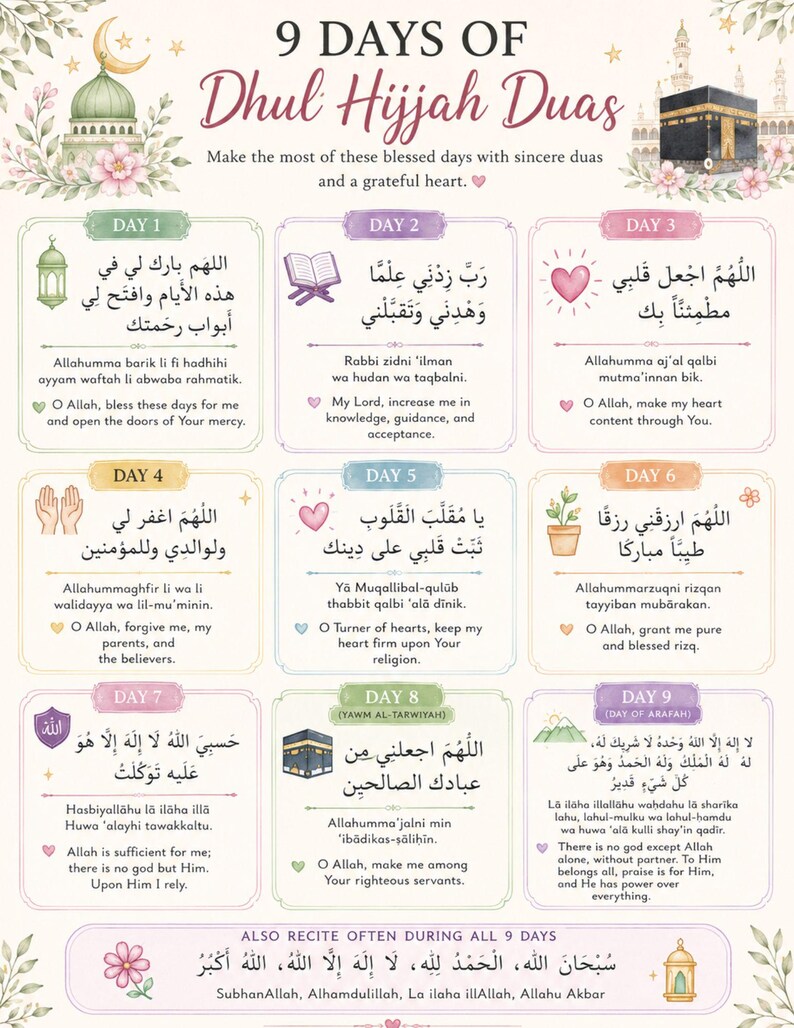 9 DAYS OF
Dhul' Hijjah Duas
Make the most of these blessed days with sincere duas
and a grateful heart.
DAY 1
اللهَم بارك لي في
هذه الأيام وافتَح لِي
أبواب رحَمتك
Allahumma barik li fi hadhihi
ayyam waftah li abwaba rahmatik.
O Allah, bless these days for me
and open the doors of Your mercy.
DAY 2
رَبِّ زِدْنَِي عِلْمًَا
وَهْدِنَي وَتَقبَّلْني
Rabbi zidni ‘ilman
wa hudan wa taqbalni.
My Lord, increase me in
knowledge, guidance, and
acceptance.
DAY 3
اللُّهُمَّ اجْعلَ قَلبِي
مطْمِئنَّاً بِك
Allahumma aj‘al qalbi
mutma’innan bik.
O Allah, make my heart
content through You.
DAY 4
اللُّهُمَ اغفر لي
ولوالدِي وللمؤمنين
Allahummaghfir li wa li
walidayya wa lil-mu’minin.
O Allah, forgive me, my
parents, and
the believers.
DAY 5
يا مُقَلَّبَ الَقَّلَوبِ
ثَبِّتْ قَلبِي على دِينك
Yā Muqallibal-qulūb
thabbit qalbi ‘alā dīnik.
O Turner of hearts, keep my
heart firm upon Your
religion.
DAY 6
اللُّهُمَ ارزقَني رزقًا
طيِبَّاً مباركًا
Allahummarzuqni rizqan
tayyiban mubārakan.
O Allah, grant me pure
and blessed rizq.
DAY 7
الله
حَسبِيَ اللهُ لَا إِلَهَ إِلَّا هُوَ
عَلَيه تَوَكَلْتُ
Hasbiyallāhu lā ilāha illā
Huwa ‘alayhi tawakkaltu.
Allah is sufficient for me;
there is no god but Him.
Upon Him I rely.
DAY 8
(YAWM AL-TARWIYAH)
اللُّهُمَ اجعلنِي مِن
عبادك الصالحِين
Allahumma‘jalni min
‘ibādikas-ṣāliḥīn.
O Allah, make me among
Your righteous servants.
DAY 9
(DAY OF ARAFAH)
لا إلهَ إِلَّا اللهُ وَحْدهُ لَا شَرِيكَ لَهُ،
لَهُ لَهُ الْمَلِْكُ وَلَهُ الْحَمدُ وَهُوَ عَلَى
كُلِّ شَيْءٍ قَدِيرُ
Lā ilāha illallāhu waḥdahu lā sharīka
lahu, lahul-mulku wa lahul-ḥamdu
wa huwa ‘alā kulli shay’in qadīr.
There is no god except Allah
alone, without partner. To Him
belongs all, praise is for Him,
and He has power over
everything.
ALSO RECITE OFTEN DURING ALL 9 DAYS
سُبْحَانَ الله، الْحَمْدُ لِلهِ، لَا إِلَهَ إِلَّا اللهُ، اللهُ أَكْبُرُ
SubhanAllah, Alhamdulillah, La ilaha illAllah, Allahu Akbar